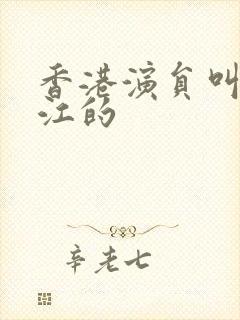 香港演员叫
江的
辛老七